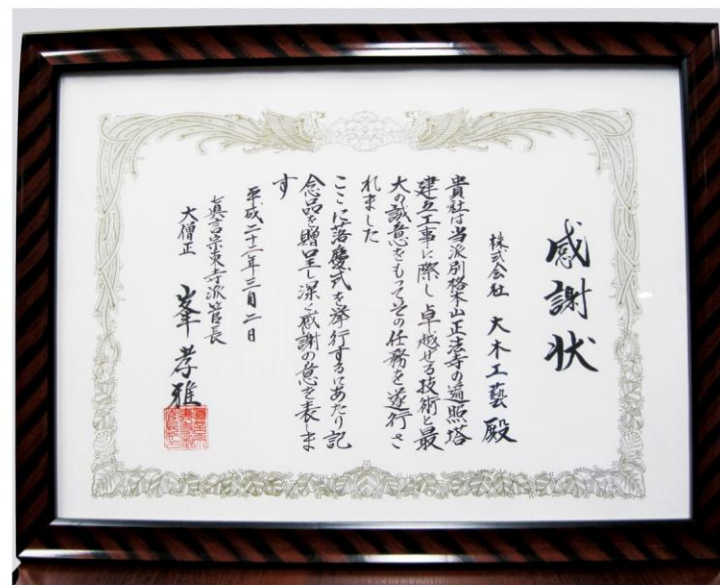 感謝状
株式会社 大木工藝 殿
貴社は当派別格本山正法寺の遍照塔
建立工事に際し卓越せる技術と最
大の誠意をもってその任務を遂行さ
れました
ここに落慶式を挙行するにあたり記
念品を贈呈し深く感謝の意を表しま
す
平成二十二年三月二日
真言宗東寺派管長
大僧正 峯孝雅